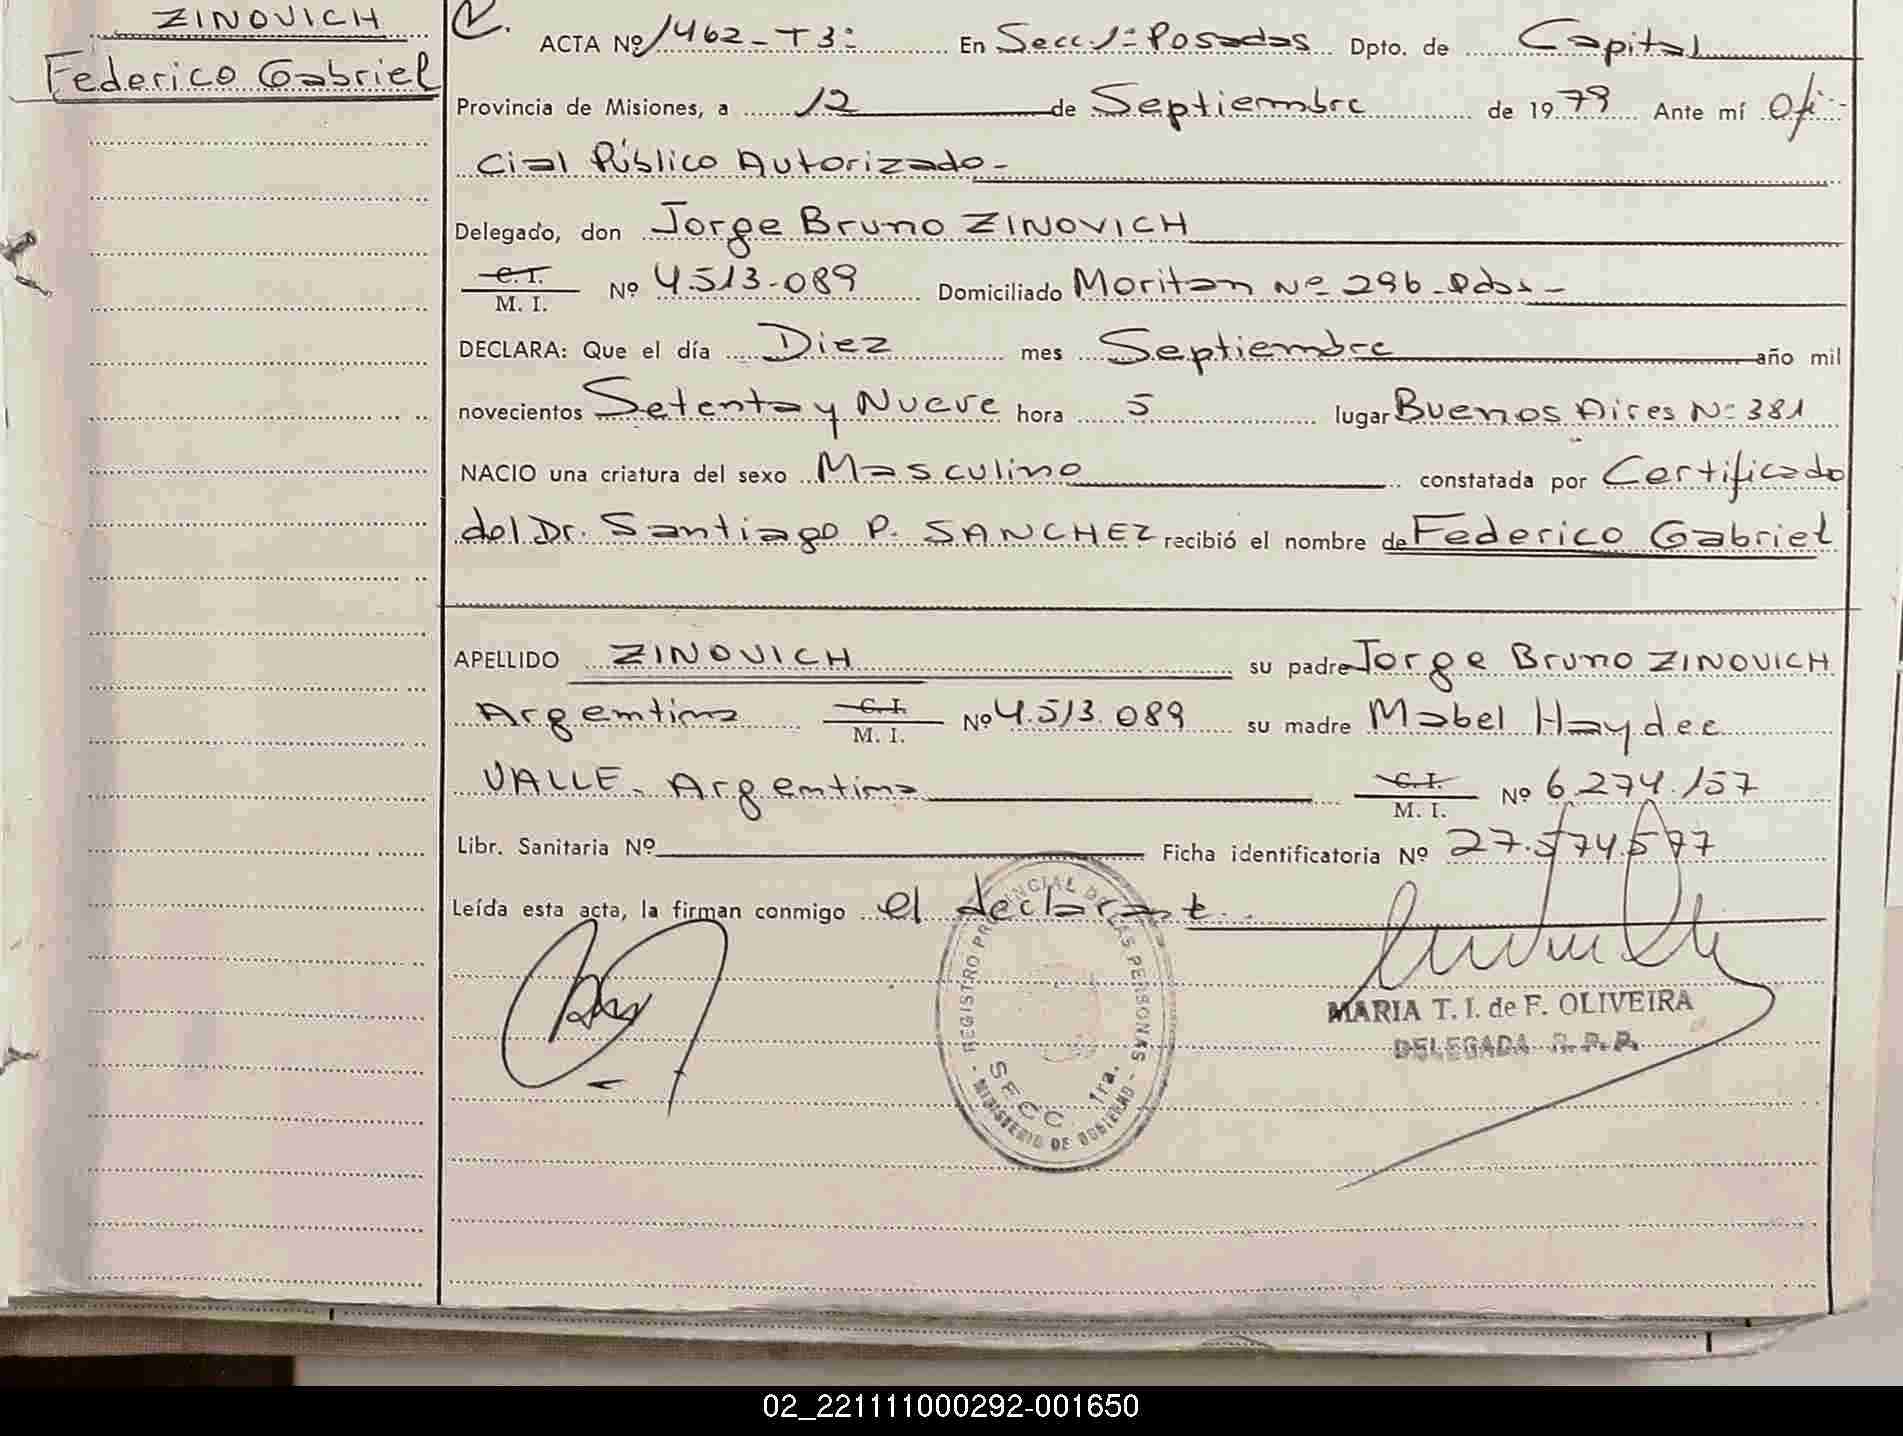 ZINOVICH
Federico Gabriel
ACTA Nº 1462-T3: En Secc. 1ª Posadas Dpto. de Capital
Provincia de Misiones, a 12 de Septiembre de 1979 Ante mí Ofi-
cial Público Autorizado-
Delegado, don Jorge Bruno ZINOVICH
C.I.
M. I. Nº 4.513.089 Domiciliado Moritan Nº 296-Pdas-
DECLARA: Que el día Diez mes Septiembre año mil
novecientos Setenta y Nueve hora 5 lugar Buenos Aires Nº 381
NACIO una criatura del sexo Masculino constatada por Certificado
del Dr. Santiago P. SANCHEZ recibió el nombre de Federico Gabriel
APELLIDO ZINOVICH su padre Jorge Bruno ZINOVICH
Argentina C.I.
M. I. Nº 4.513.089 su madre Mabel Haydee
VALLE- Argentina C.I.
M. I. Nº 6.274.157
Libr. Sanitaria Nº Ficha identificatoria Nº 27.574.577
Leída esta acta, la firman conmigo el declarante.
- REGISTRO PROVINCIAL DE LAS PERSONAS -
SECC. 1ra.
MINISTERIO DE GOBIERNO
MARIA T. I. de F. OLIVEIRA
DELEGADA R. P. P.
02_221111000292-001650